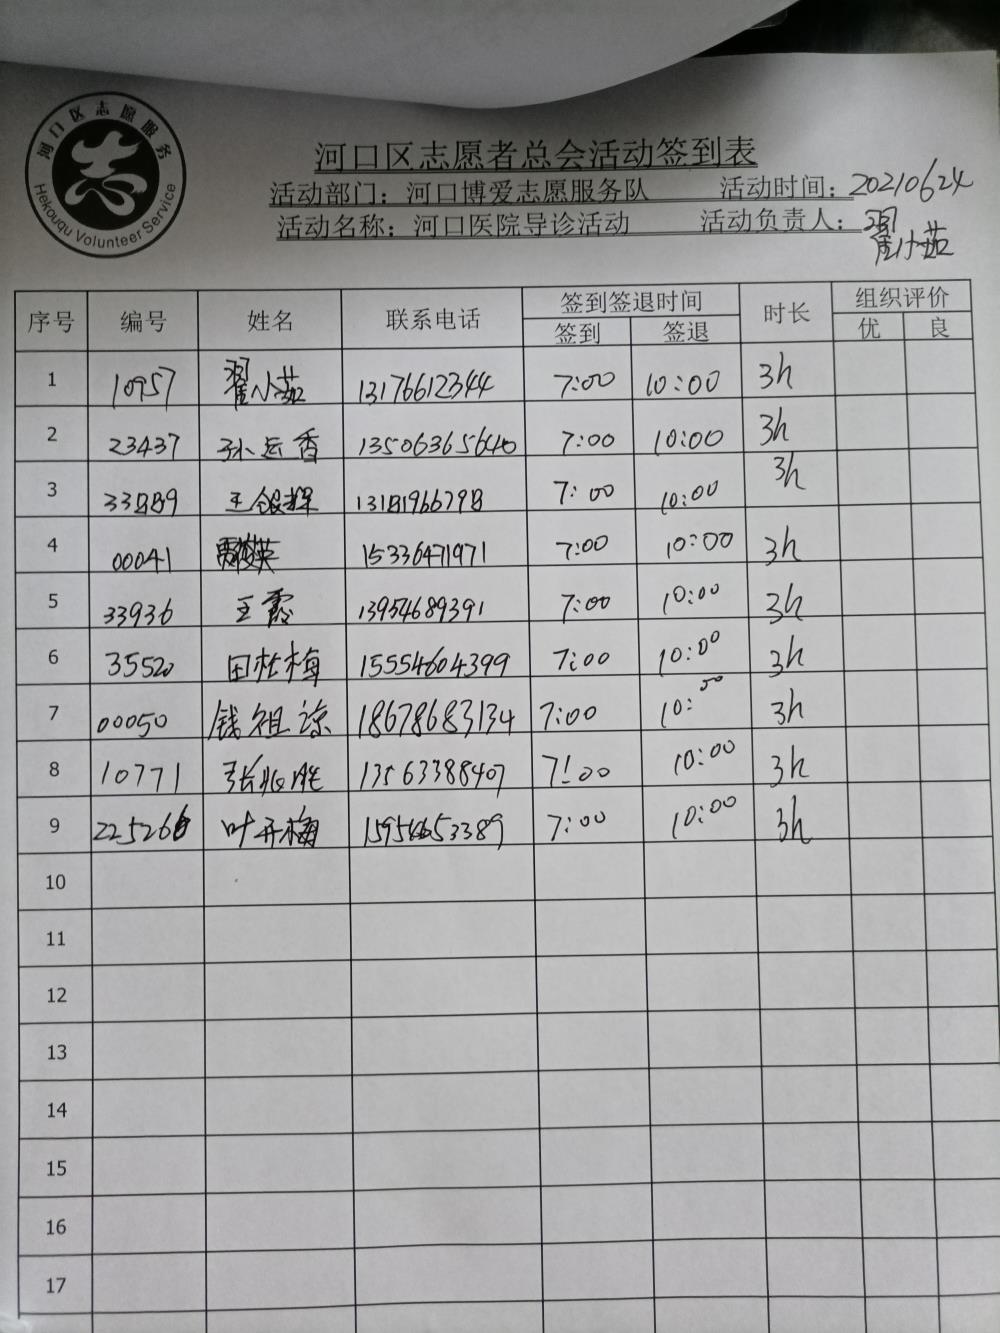 河口区志愿服务
Hekouqu Volunteer Service
河口区志愿者总会活动签到表
活动部门：河口博爱志愿服务队 活动时间：20210624
活动名称：河口医院导诊活动 活动负责人：翟小茹
序号 编号 姓名 联系电话 签到签退时间 时长 组织评价
签到 签退 优 良
1 10757 翟小茹 13176612344 7:00 10:00 3h
2 23437 孙运香 13506365640 7:00 10:00 3h
3 33889 王银辉 13181966798 7:00 10:00 3h
4 00041 贾俊英 15336471971 7:00 10:00 3h
5 33936 王霞 13954689391 7:00 10:00 3h
6 35520 田杜梅 15554604399 7:00 10:00 3h
7 00050 钱祖谅 18678683134 7:00 10:00 3h
8 10771 张兆胜 13563388407 7:00 10:00 3h
9 叶开梅 7:00 10:00 3h
10
11
12
13
14
15
16
17